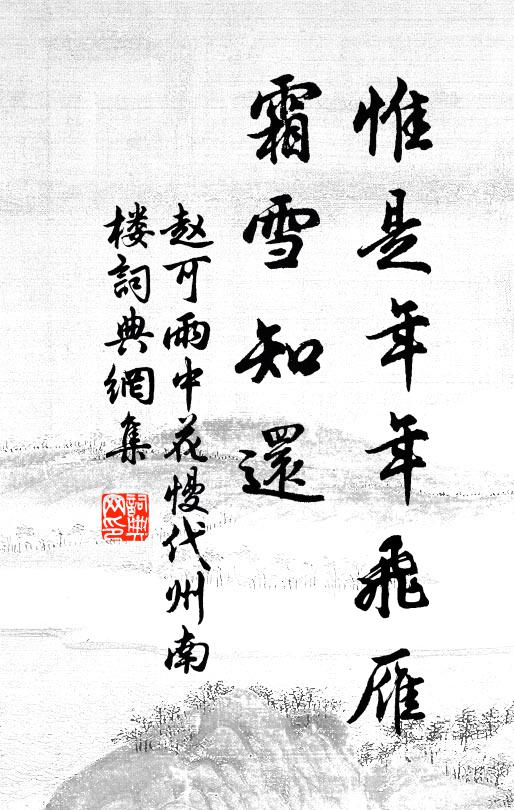 惟是年年飛雁
霜雪知還
赵可雨中花慢代州南
楼詞典網集
詞典网印